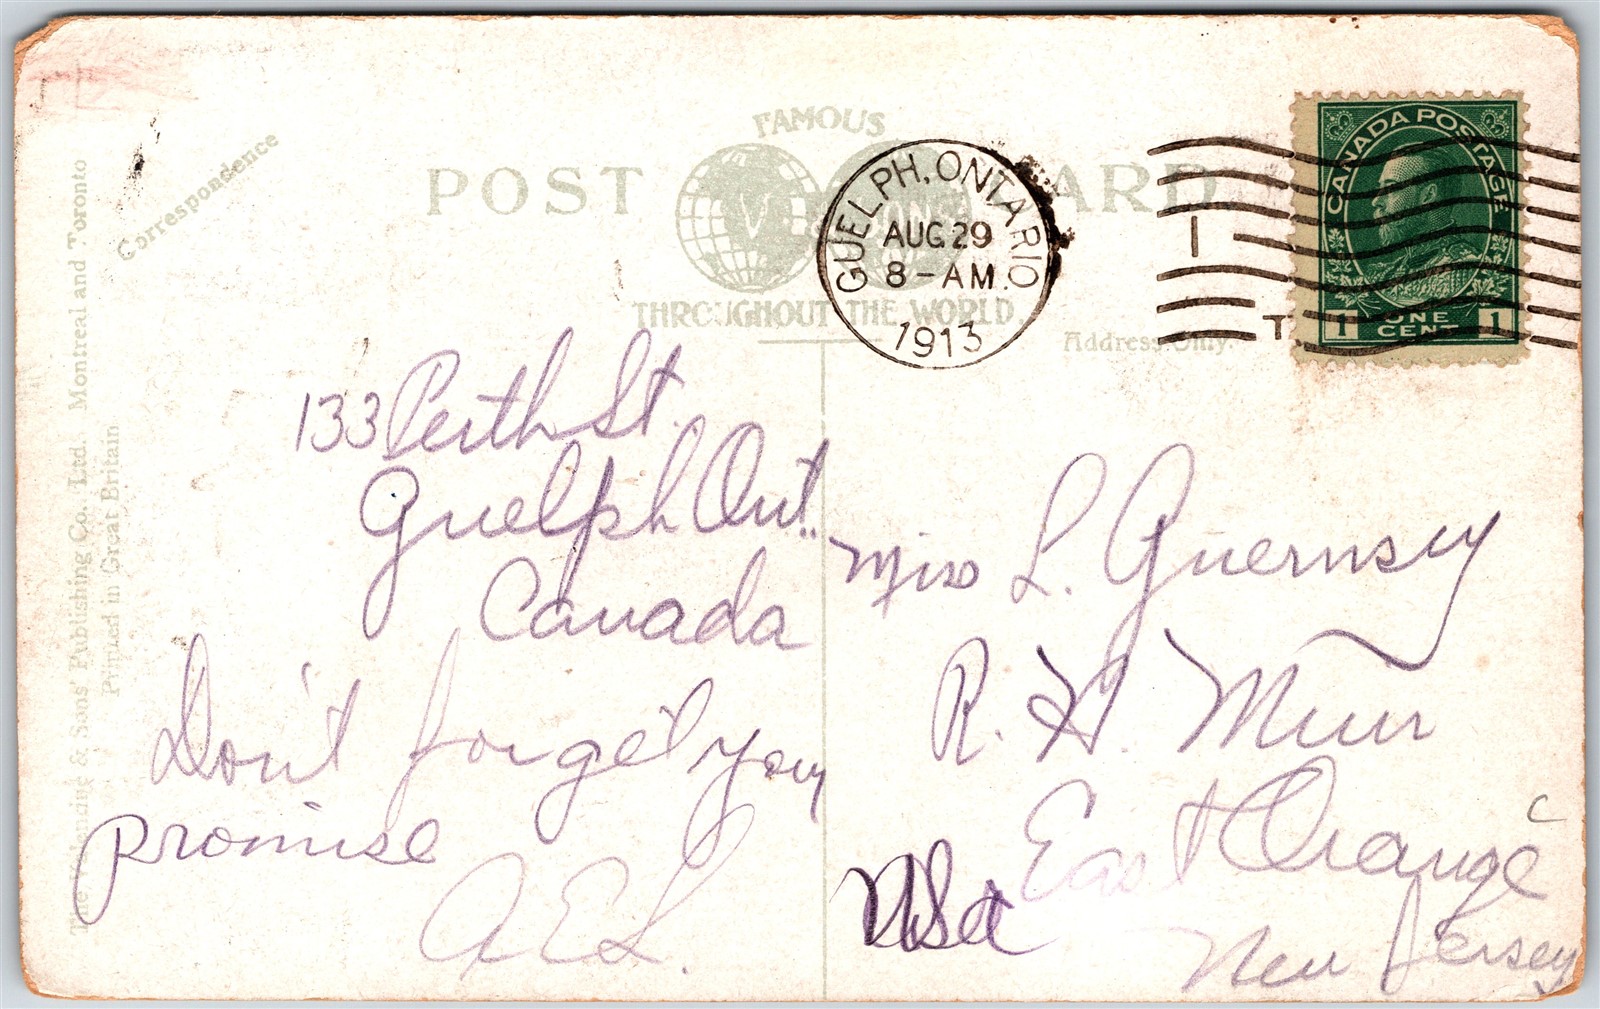 Correspondence
FAMOUS
POST CARD
THROUGHOUT THE WORLD.
Address Only.
GUELPH, ONTARIO
AUG 29
8-AM
1913
CANADA POSTAGE
1 ONE CENT 1
133 Perth St.
Guelph Ont.
Canada
Don't forget your
promise
A E L.
Miss L. Guernsey
R. H. Muir
East Orange
New Jersey
USA
& Sons' Publishing Co. Ltd. Montreal and Toronto
Printed in Great Britain